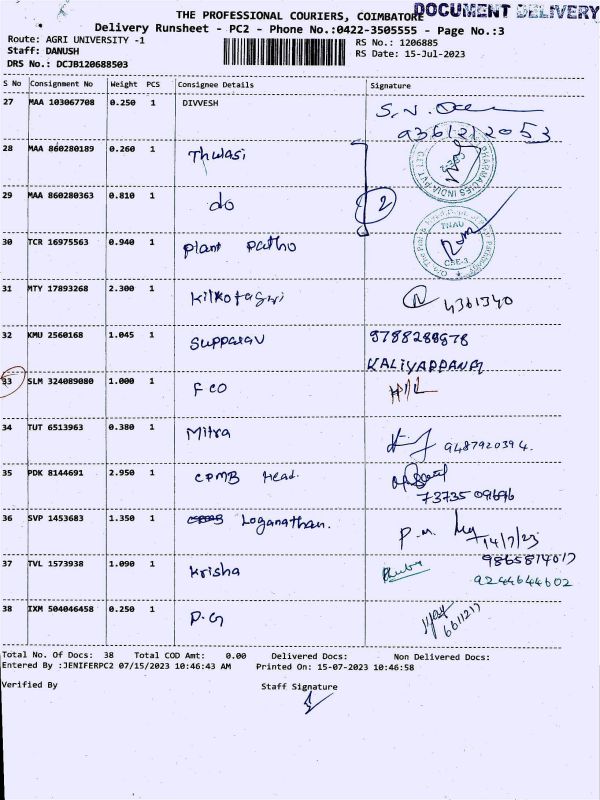 THE PROFESSIONAL COURIERS, COIMBATORE
DOCUMENT DELIVERY
Delivery Runsheet - PC2 - Phone No.:0422-3505555 - Page No.:3
Route: AGRI UNIVERSITY -1
RS No.: 1206885
Staff: DANUSH
RS Date: 15-Jul-2023
DRS No.: DCJB120688503
S No Consignment No Weight PCS Consignee Details Signature
27 MAA 103067708 0.250 1 DIVVESH
9361212053
28 MAA 860280189 0.260 1 Thulasi
29 MAA 860280363 0.810 1 do 2
30 TCR 16975563 0.940 1 plant patho
TNAU
CBE-3
31 MTY 17893268 2.300 1 Kilkotagiri 4361340
32 KMU 2560168 1.045 1 Supparav 9788288878
KALIYAPPANA
33 SLM 324089080 1.000 1 FCO
34 TUT 6513963 0.380 1 Mitra 9487920394.
35 PDK 8144691 2.950 1 CPMB Head.
73735 09696
36 SVP 1453683 1.350 1 Loganathan.
14/7/23
37 TVL 1573938 1.090 1 Krisha 9865814017
9244644602
38 IXM 504046458 0.250 1 P.G 6611217
Total No. Of Docs: 38 Total COD Amt: 0.00 Delivered Docs: Non Delivered Docs:
Entered By :JENIFERPC2 07/15/2023 10:46:43 AM Printed On: 15-07-2023 10:46:58
Verified By Staff Signature